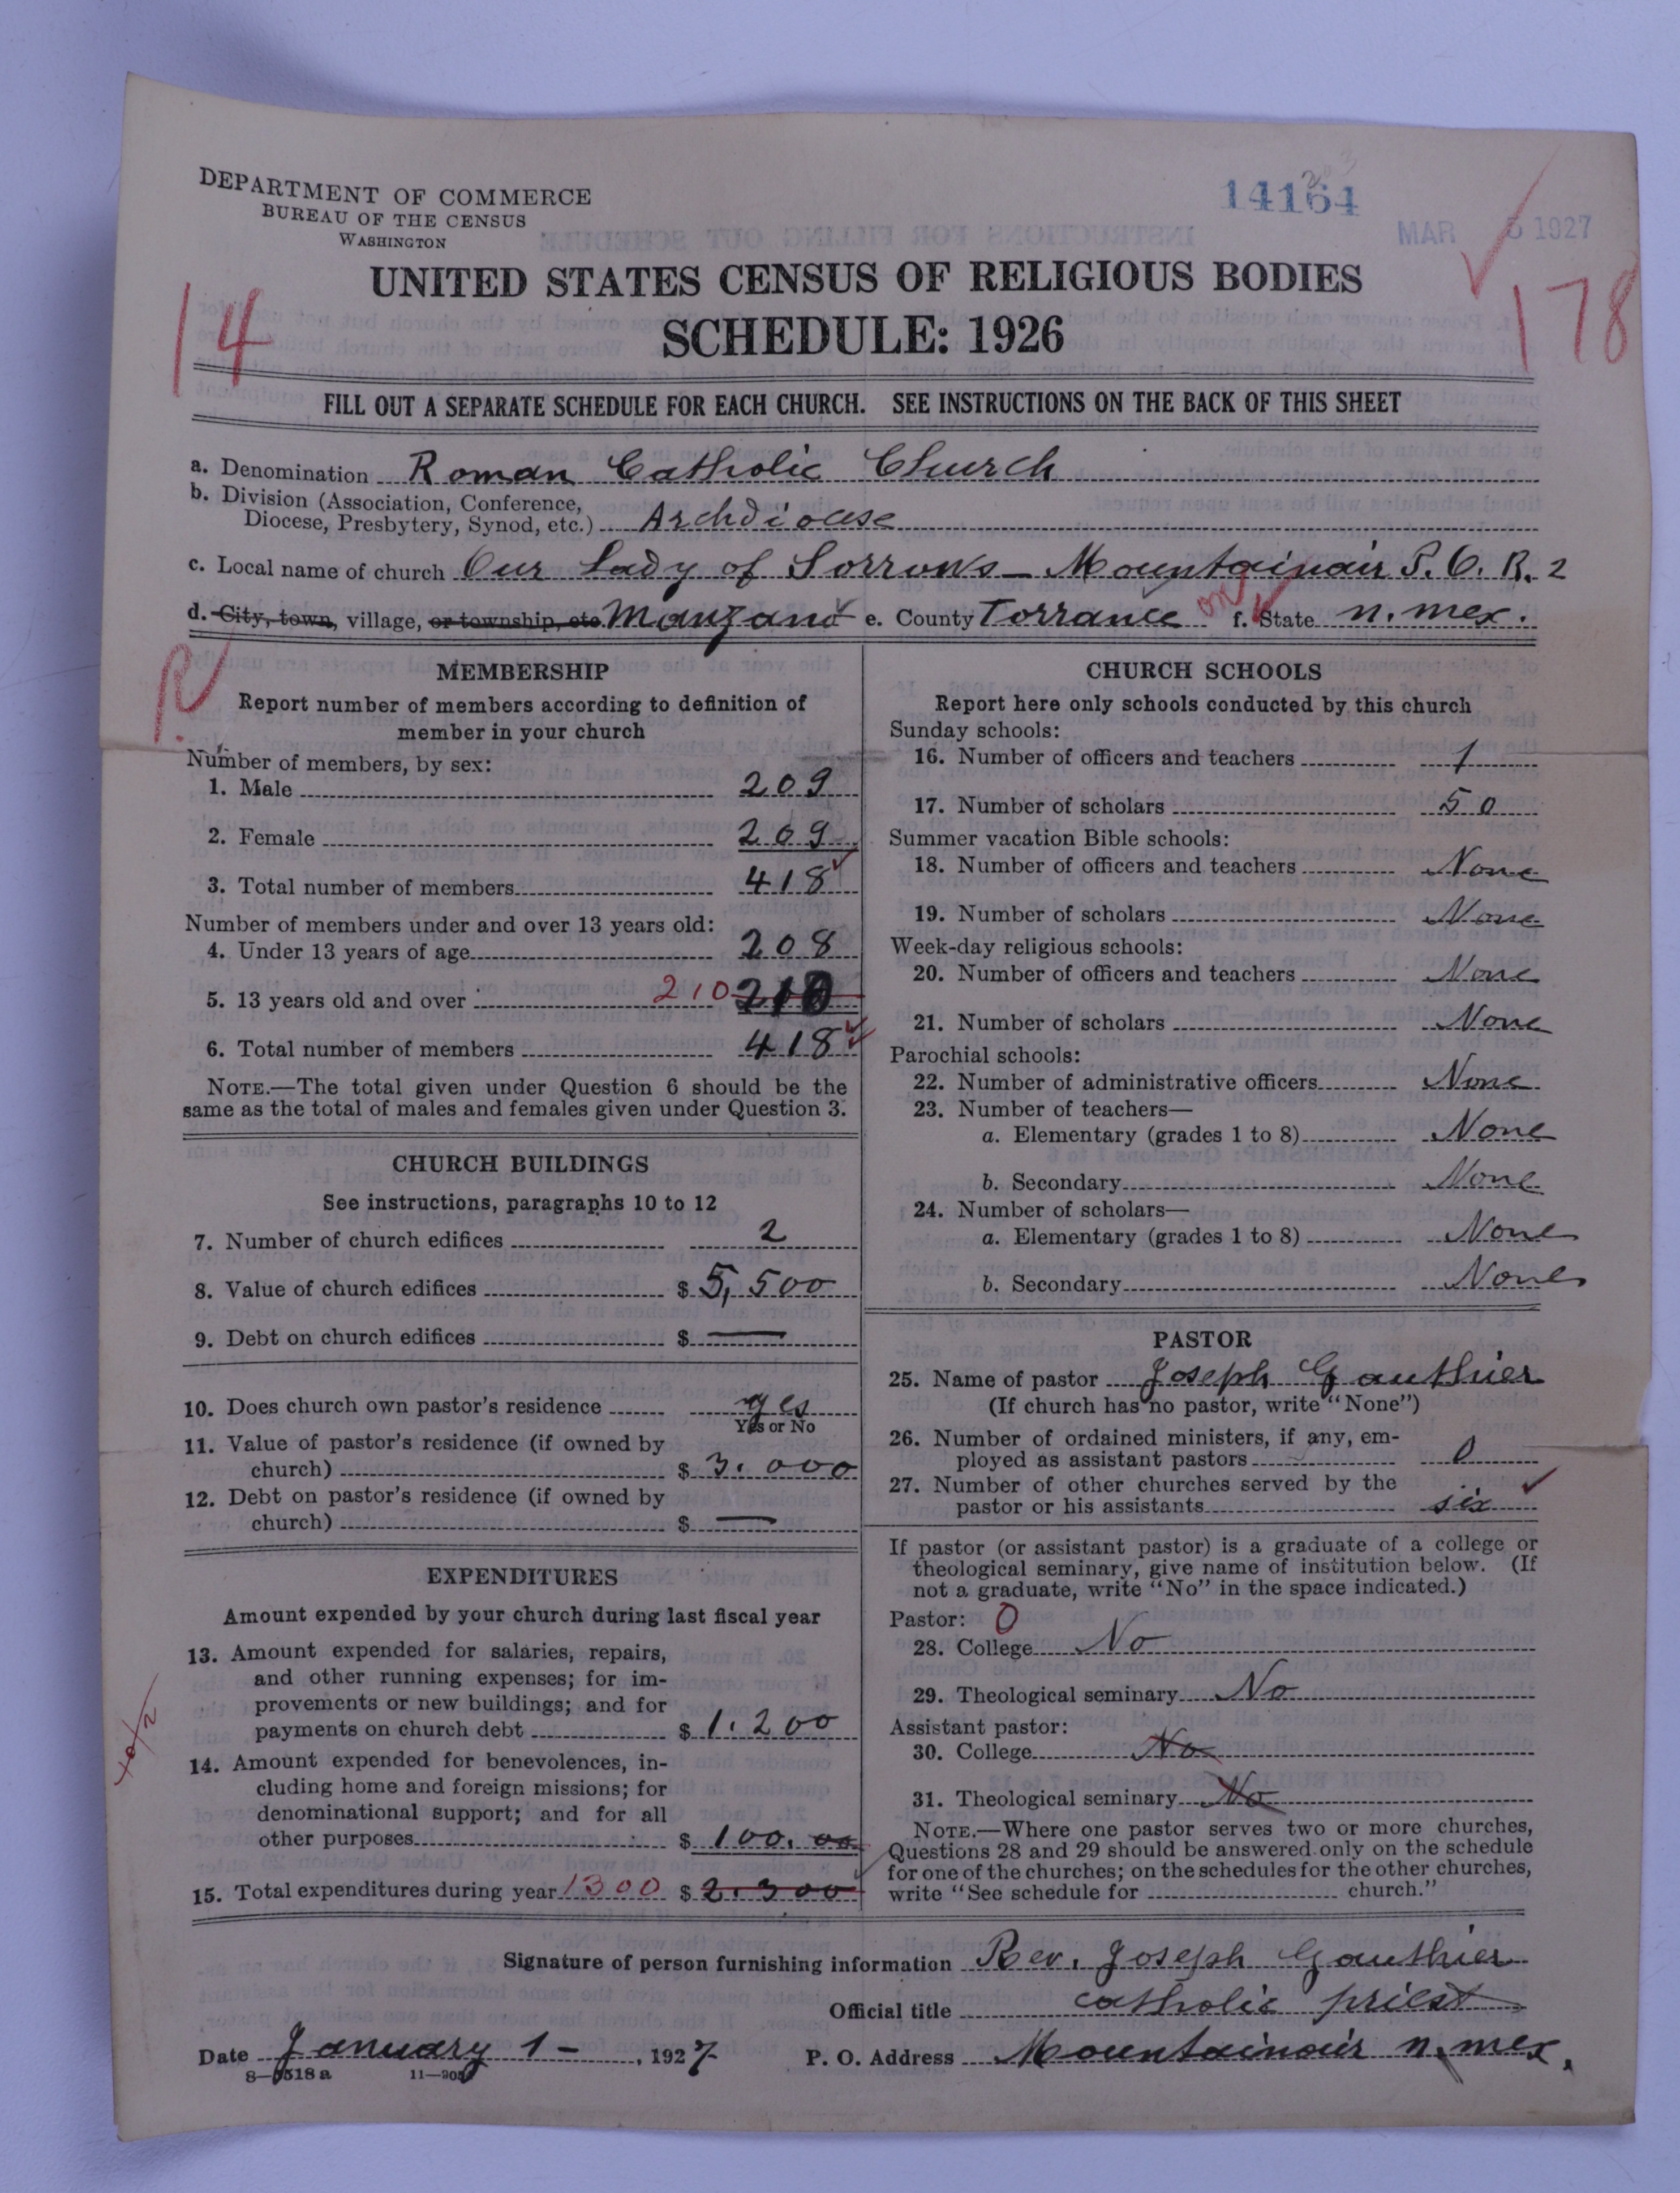 DEPARTMENT OF COMMERCE
BUREAU OF THE CENSUS
WASHINGTON
14164
MAR 5 1927
UNITED STATES CENSUS OF RELIGIOUS BODIES
SCHEDULE: 1926
14
178
FILL OUT A SEPARATE SCHEDULE FOR EACH CHURCH. SEE INSTRUCTIONS ON THE BACK OF THIS SHEET
a. Denomination Roman Catholic Church
b. Division (Association, Conference,
Diocese, Presbytery, Synod, etc.) Archdiocese
c. Local name of church Our Lady of Sorrows - Mountainair P.O. R. 2
d. City, town, village, or township, etc. Manzano e. County Torrance f. State n. mex.
MEMBERSHIP
Report number of members according to definition of
member in your church
Number of members, by sex:
1. Male 209
2. Female 209
3. Total number of members 418
Number of members under and over 13 years old:
4. Under 13 years of age 208
5. 13 years old and over 210 210
6. Total number of members 418
NOTE.—The total given under Question 6 should be the
same as the total of males and females given under Question 3.
CHURCH BUILDINGS
See instructions, paragraphs 10 to 12
7. Number of church edifices 2
8. Value of church edifices $ 5,500
9. Debt on church edifices $ —
10. Does church own pastor's residence yes
Yes or No
11. Value of pastor's residence (if owned by
church) $ 3.000
12. Debt on pastor's residence (if owned by
church) $ —
EXPENDITURES
Amount expended by your church during last fiscal year
13. Amount expended for salaries, repairs,
and other running expenses; for im-
provements or new buildings; and for
payments on church debt $ 1.200
14. Amount expended for benevolences, in-
cluding home and foreign missions; for
denominational support; and for all
other purposes $ 100.00
15. Total expenditures during year 1300 $ 2.300
CHURCH SCHOOLS
Report here only schools conducted by this church
Sunday schools:
16. Number of officers and teachers 1
17. Number of scholars 50
Summer vacation Bible schools:
18. Number of officers and teachers None
19. Number of scholars None
Week-day religious schools:
20. Number of officers and teachers None
21. Number of scholars None
Parochial schools:
22. Number of administrative officers None
23. Number of teachers—
a. Elementary (grades 1 to 8) None
b. Secondary None
24. Number of scholars—
a. Elementary (grades 1 to 8) None
b. Secondary None
PASTOR
25. Name of pastor Joseph Gauthier
(If church has no pastor, write "None")
26. Number of ordained ministers, if any, em-
ployed as assistant pastors 0
27. Number of other churches served by the
pastor or his assistants six
If pastor (or assistant pastor) is a graduate of a college or
theological seminary, give name of institution below. (If
not a graduate, write "No" in the space indicated.)
Pastor: 0
28. College No
29. Theological seminary No
Assistant pastor:
30. College No
31. Theological seminary No
NOTE.—Where one pastor serves two or more churches,
Questions 28 and 29 should be answered only on the schedule
for one of the churches; on the schedules for the other churches,
write "See schedule for church."
Signature of person furnishing information Rev. Joseph Gauthier
Official title catholic priest
Date January 1 - , 1927 P. O. Address Mountainair n. mex.